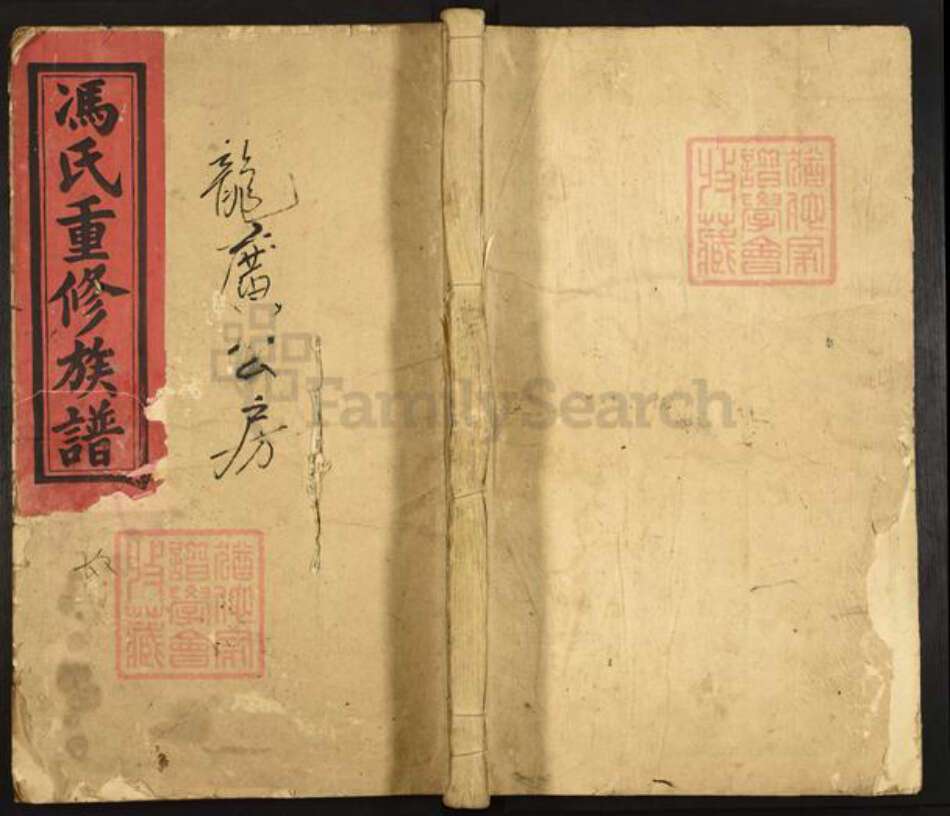 馮氏重修族譜
龍廣公房
FamilySearch
猶他家
譜學會
收藏
猶他家
譜學會
收藏